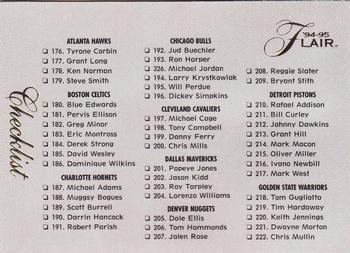 Checklist
ATLANTA HAWKS
176. Tyrone Corbin
177. Grant Long
178. Ken Norman
179. Steve Smith
BOSTON CELTICS
180. Blue Edwards
181. Pervis Ellison
182. Greg Minor
183. Eric Montross
184. Derek Strong
185. David Wesley
186. Dominique Wilkins
CHARLOTTE HORNETS
187. Michael Adams
188. Muggsy Bogues
189. Scott Burrell
190. Darrin Hancock
191. Robert Parish
CHICAGO BULLS
192. Jud Buechler
193. Ron Harper
326. Michael Jordan
194. Larry Krystkowiak
195. Will Perdue
196. Dickey Simpkins
CLEVELAND CAVALIERS
197. Michael Cage
198. Tony Campbell
199. Danny Ferry
200. Chris Mills
DALLAS MAVERICKS
201. Popeye Jones
202. Jason Kidd
203. Roy Tarpley
204. Lorenzo Williams
DENVER NUGGETS
205. Dale Ellis
206. Tom Hammonds
207. Jalen Rose
'94-95
FLAIR
208. Reggie Slater
209. Bryant Stith
DETROIT PISTONS
210. Rafael Addison
211. Bill Curley
212. Johnny Dawkins
213. Grant Hill
214. Mark Macon
215. Oliver Miller
216. Ivano Newbill
217. Mark West
GOLDEN STATE WARRIORS
218. Tom Gugliotta
219. Tim Hardaway
220. Keith Jennings
221. Dwayne Morton
222. Chris Mullin